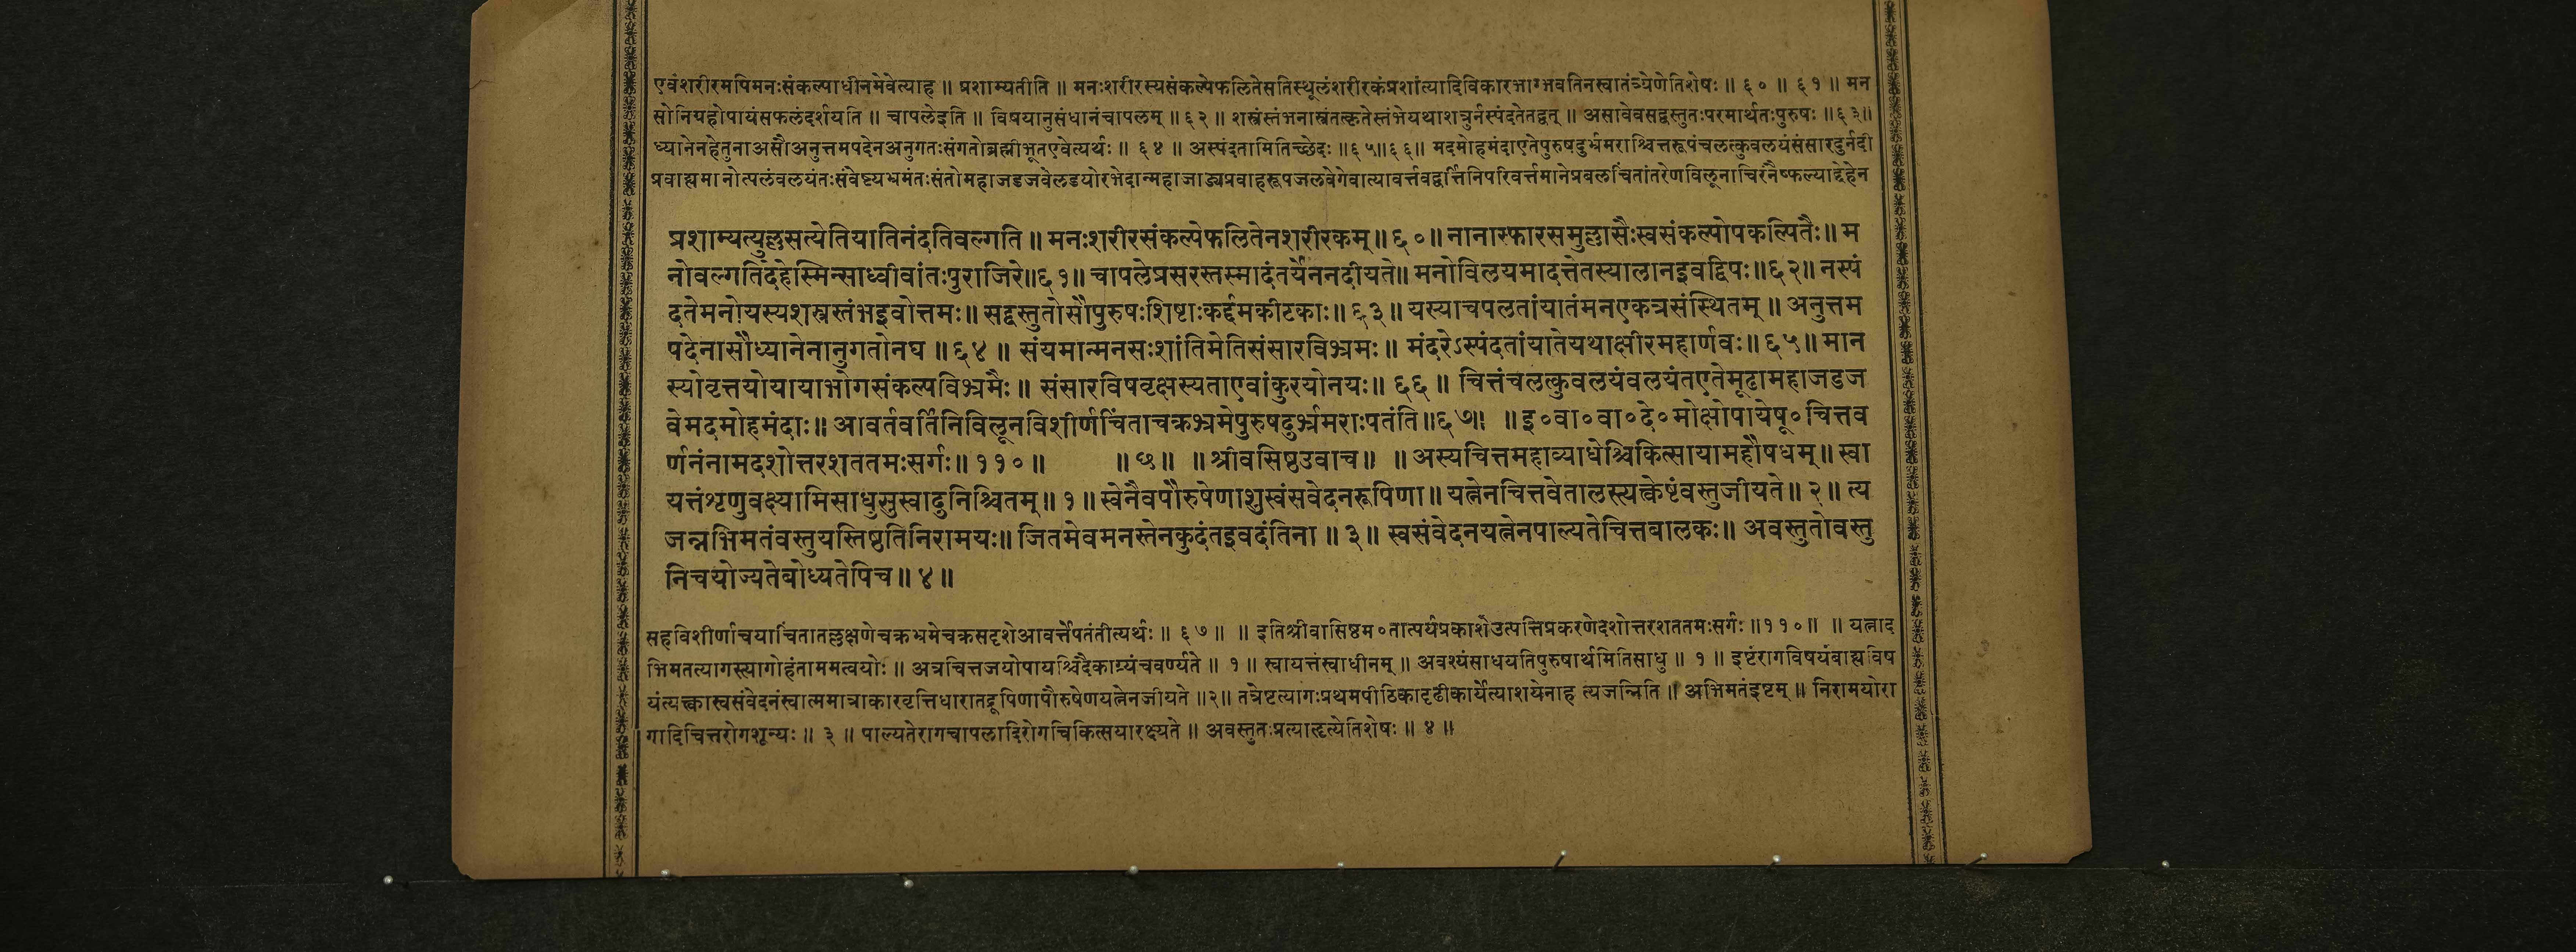 एवंशरीरमपिमनःसंकल्पाधीनमेवेत्याह ॥ प्रशाम्यतीति ॥ मनःशरीरस्यसंकल्पेफलितेसतिस्थूलंशरीरकंप्रशांत्यादिविकारभाग्भवतिनस्वातंत्र्येणेतिशेषः ॥ ६० ॥ ६१ ॥ मन
सोनिग्रहोपायंसफलंदर्शयति ॥ चापलेइति ॥ विषयानुसंधानंचापलम् ॥ ६२ ॥ शस्त्रंस्तंभनास्त्रंतत्कृतेस्तंभेयथाशत्रुर्नस्पंदतेतद्वत् ॥ असावेवसद्वस्तुतःपरमार्थतःपुरुषः ॥ ६३ ॥
ध्यानेनहेतुनाअसौअनुत्तमपदेनअनुगतःसंगतोब्रह्मीभूतएवेत्यर्थः ॥ ६४ ॥ अस्पंदतामितिच्छेदः ॥ ६५॥६६॥ मदमोहमंदाएतेपुरुषदुर्भ्रमराश्चित्तरूपंचलत्कुवलयंसंसारदुर्नदी
प्रवाहाम्रानोत्पलंवलयंतःसंवेष्ट्यभ्रमंतःसंतोमहाजडजवेलडयोरभेदान्महाजाड्यप्रवाहरूपजलवेगेवात्यावर्त्तवद्वर्त्तिनिपरिवर्त्तमानेप्रबलचिंतांतरेणविलूनाचिरंनैष्फल्याद्देहेन
प्रशाम्यत्युल्लसत्येतियातिनंदतिवल्गति ॥ मनःशरीरसंकल्पेफलितेनशरीरकम् ॥ ६० ॥ नानास्फारसमुल्लासैःस्वसंकल्पोपकल्पितैः ॥ म
नोवल्गतिदेहेस्मिन्साध्वीवांतःपुराजिरे॥६१॥ चापलेप्रसरस्तस्मादंतर्येननदीयते॥ मनोविलयमादत्तेतस्यालानइवद्विपः॥६२॥ नस्पं
दतेमनोयस्यशस्त्रस्तंभइवोत्तमः॥ सद्वस्तुतोसौपुरुषःशिष्टाःकर्द्दमकीटकाः॥ ६३ ॥ यस्याचपलतांयातंमनएकत्रसंस्थितम् ॥ अनुत्तम
पदेनासौध्यानेनानुगतोनघ ॥ ६४ ॥ संयमान्मनसःशांतिमेतिसंसारविभ्रमः ॥ मंदरेऽस्पंदतांयातेयथाक्षीरमहार्णवः॥ ६५ ॥ मान
स्योवृत्तयोयायाभोगसंकल्पविभ्रमैः ॥ संसारविषवृक्षस्यताएवांकुरयोनयः॥ ६६ ॥ चित्तंचलत्कुवलयंवलयंतएतेमूढामहाजडज
वेमदमोहमंदाः॥ आवर्तवर्तिनिविलूनविशीर्णचिंताचक्रभ्रमेपुरुषदुर्भ्रमराःपतंति॥६७॥ ॥ इ०वा०वा०दे०मोक्षोपायेषू०चित्तव
र्णनंनामदशोत्तरशततमःसर्गः॥ ११० ॥ ॥ ७ ॥ ॥ श्रीवसिष्ठउवाच॥ ॥ अस्यचित्तमहाव्याधेश्चिकित्सायामहौषधम् ॥ स्वा
यत्तंशृणुवक्ष्यामिसाधुसुस्वादुनिश्चितम् ॥ १ ॥ स्वेनैवपौरुषेणाशुस्वंसवेदनरूपिणा ॥ यत्नेनचित्तवेतालस्त्यक्त्वेष्टंवस्तुजीयते॥ २॥ त्य
जन्नभिमतंवस्तुयस्तिष्ठतिनिरामयः॥ जितमेवमनस्तेनकुदंतइवदंतिना ॥ ३ ॥ स्वसंवेदनयत्नेनपाल्यतेचित्तबालकः॥ अवस्तुतोवस्तु
निचयोज्यतेबोध्यतेपिच॥ ४॥
सहविशीर्णाचयाचिंतातल्लक्षणेचक्रभ्रमेचक्रसदृशेआवर्त्तेपतंतीत्यर्थः ॥ ६७ ॥ ॥ इतिश्रीवासिष्ठम०तात्पर्यप्रकाशेउत्पत्तिप्रकरणेदशोत्तरशततमःसर्गः ॥ ११० ॥ ॥ यत्नाद
भिमतत्यागस्त्यागोहंताममत्वयोः ॥ अत्रचित्तजयोपायश्चिदैकाग्र्यंचवर्ण्यते ॥ १ ॥ स्वायत्तंस्वाधीनम् ॥ अवश्यंसाधयतिपुरुषार्थमितिसाधु ॥ १ ॥ इष्टंरागविषयंबाह्यविष
यंत्यक्त्वास्वसंवेदनंस्वात्ममात्राकारवृत्तिधारातद्रूपिणापौरुषेणयत्नेनजीयते ॥२॥ तत्रेष्टत्यागःप्रथमपीठिकादृढीकार्येत्याशयेनाह त्यजन्निति ॥ अभिमतंइष्टम् ॥ निरामयोरा
गादिचित्तरोगशून्यः ॥ ३ ॥ पाल्यतेरागचापलादिरोगचिकित्सयारक्ष्यते ॥ अवस्तुतःप्रत्याहृत्येतिशेषः ॥ ४ ॥